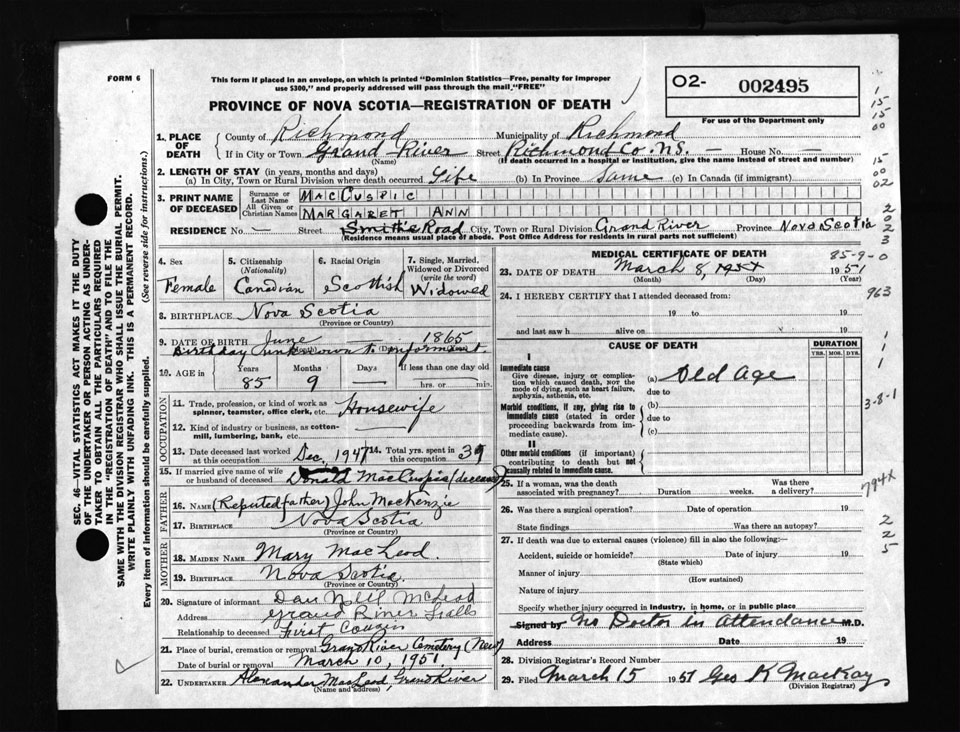 FORM 6
This form if placed in an envelope, on which is printed "Dominion Statistics—Free, penalty for improper
use $300," and properly addressed will pass through the mail "FREE"
O2- 002495
For use of the Department only
PROVINCE OF NOVA SCOTIA—REGISTRATION OF DEATH
1. PLACE OF DEATH { County of Richmond Municipality of Richmond
If in City or Town Grand River Street Richmond Co. N.S. — House No. —
(Name) (If death occurred in a hospital or institution, give the name instead of street and number)
2. LENGTH OF STAY (in years, months and days)
(a) In City, Town or Rural Division where death occurred Life (b) In Province Same (c) In Canada (if immigrant)
3. PRINT NAME OF DECEASED { Surname or Last Name MacCuspic
All Given or Christian Names MARGARET ANN
RESIDENCE No. — Street Smiths Road City, Town or Rural Division Grand River Province Nova Scotia
(Residence means usual place of abode. Post Office Address for residents in rural parts not sufficient)
4. Sex Female
5. Citizenship (Nationality) Canadian
6. Racial Origin Scottish
7. Single, Married, Widowed or Divorced (write the word) Widowed
8. BIRTHPLACE Nova Scotia
(Province or Country)
9. DATE OF BIRTH June 1865
Birthday unknown to informant.
10. AGE in Years 85 Months 9 Days — If less than one day old hrs. or min.
OCCUPATION
11. Trade, profession, or kind of work as spinner, teamster, office clerk, etc. Housewife
12. Kind of industry or business, as cotton-mill, lumbering, bank, etc.
13. Date deceased last worked at this occupation Dec, 1947
14. Total yrs. spent in this occupation 39
15. If married give name of wife or husband of deceased Donald MacCuspic (deceased)
FATHER
16. NAME (Reputed father) John MacKenzie
17. BIRTHPLACE Nova Scotia
(Province or Country)
MOTHER
18. MAIDEN NAME Mary MacLeod.
19. BIRTHPLACE Nova Scotia.
(Province or Country)
20. Signature of informant Dan Neil McLeod
Address Grand River Falls
Relationship to deceased First Cousin
21. Place of burial, cremation or removal Grand River Cemetery (New)
Date of burial or removal March 10, 1951.
22. UNDERTAKER Alexander MacLeod, Grand River
(Name and address)
MEDICAL CERTIFICATE OF DEATH
23. DATE OF DEATH March 8, 1951
(Month) (Day) (Year)
24. I HEREBY CERTIFY that I attended deceased from:
19 to 19
and last saw h alive on 19
CAUSE OF DEATH
DURATION
YRS. MOS. DYS.
I
Immediate cause
Give disease, injury or complication which caused death, NOT the mode of dying, such as heart failure, asphyxia, asthenia, etc.
(a) Old Age
due to
Morbid conditions, if any, giving rise to immediate cause (stated in order proceeding backwards from immediate cause)
(b)
due to
(c)
II
Other morbid conditions (if important) contributing to death but not causally related to immediate cause.
25. If a woman, was the death associated with pregnancy? Duration weeks. Was there a delivery?
26. Was there a surgical operation? Date of operation 19
State findings Was there an autopsy?
27. If death was due to external causes (violence) fill in also the following:—
Accident, suicide or homicide? Date of injury 19
(State which)
Manner of injury
(How sustained)
Nature of injury
Specify whether injury occurred in industry, in home, or in public place
Signed by No Doctor in Attendance M.D.
Address Date 19
28. Division Registrar's Record Number
29. Filed March 15 1951 Geo K MacKay
(Division Registrar)
SEC. 46—VITAL STATISTICS ACT MAKES IT THE DUTY
OF THE UNDERTAKER OR PERSON ACTING AS UNDER-
TAKER TO OBTAIN ALL THE PARTICULARS REQUIRED
IN THE "REGISTRATION OF DEATH" AND TO FILE THE
SAME WITH THE DIVISION REGISTRAR WHO SHALL ISSUE THE BURIAL PERMIT.
WRITE PLAINLY WITH UNFADING INK. THIS IS A PERMANENT RECORD.
Every item of information should be carefully supplied. (See reverse side for instructions.)
1
15
15
00
15
00
02
2
0
2
3
85-9-0
963
1
1
1
3-8-1
794X
2
2
5